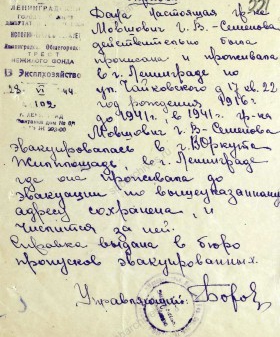 221
ЛЕНИНГРАДСКИЙ
Ленинградск. Общегородск.
ТРЕСТ
НЕЖИЛОГО ФОНДА
Эксплохозяйство
28 VI 44
102
Дана настоящая гр-ке
Мовшович г. В-Семеновне
действительно была
прописана и проживала
в г. Ленинграде по
ул. Чайковского д 17 кв. 22
год рождения 1916 г
до 1941 г., в 1941 г. гр-ка
Мовшович г В-Семеновна
эвакуировалась в г. Воркута
Жилплощадь в г. Ленинграде
где она проживала до
эвакуации по вышеуказанному
адресу сохранена, и
числится за ней.
Справка выдана в бюро
пропусков эвакуированных.
Управляющий: